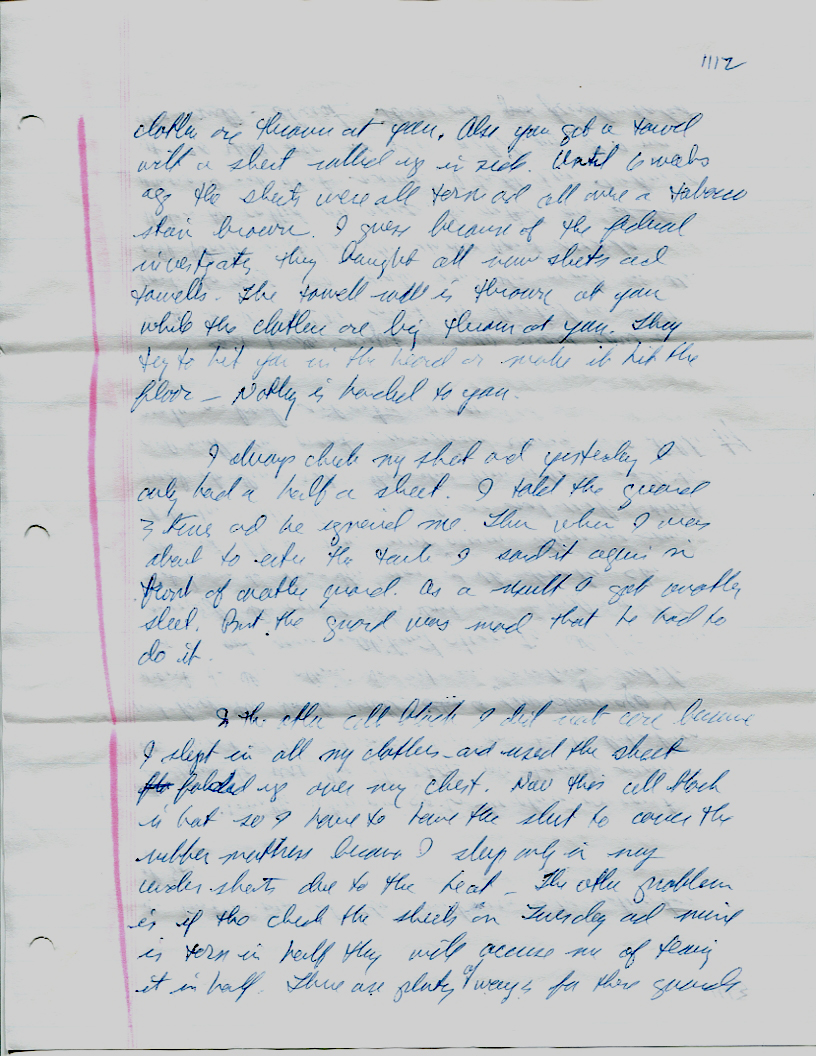 1112
clothes are thrown at you. Also you get a towel
with a sheet rolled up in side. Until 6 weeks
ago the sheets were all torn ad all were a tabacco
stain brown. I guess because of the federal
investigatn they baught all new sheets ad
towells. The towell roll is thrown at you
while the clothes are big thrown at you. They
try to hit you in the head or make it hit the
floor – Nothig is handed to you.
I always check my sheet ad yesterday I
only had a half a sheet. I told the guard
3 times ad he ignored me. Then when I was
about to enter the tank I said it again in
front of another guard. As a result I got another
sheet. But the guard was mad that he had to
do it.
In the other cell block I did not care because
I slept in all my clothes and used the sheet
folded up over my chest. Now this cell block
is hot so I have to have the sheet to cover the
rubber mattress because I sleep only in my
under shorts due to the heat – The other problem
is if the check the sheets on Tuesday ad mine
is torn in half they will accuse me of tearig
it in half. There are plenty of ways for these guards